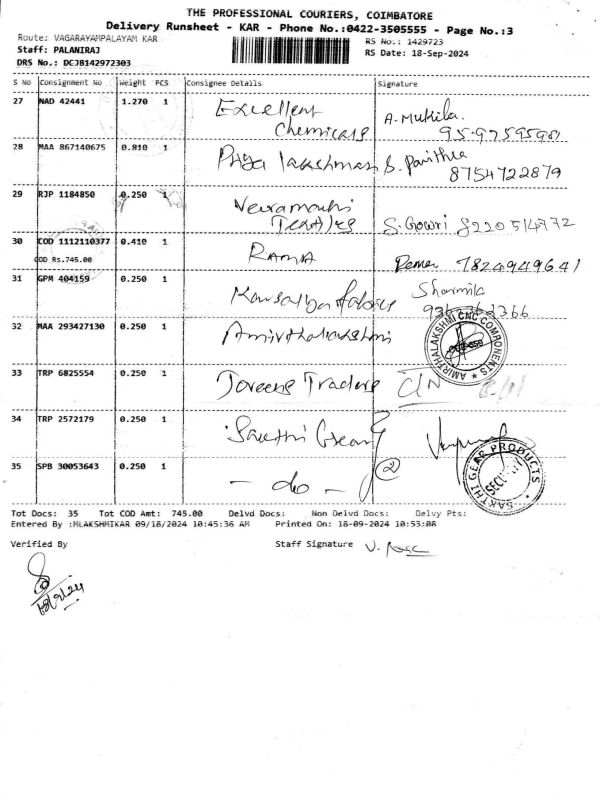 THE PROFESSIONAL COURIERS, COIMBATORE
Delivery Runsheet - KAR - Phone No.:0422-3505555 - Page No.:3
Route: VAGARAYAMPALAYAM KAR
RS No.: 1429723
Staff: PALANIRAJ
RS Date: 18-Sep-2024
DRS No.: DCJB142972303
S No Consignment No Weight PCS Consignee Details Signature
27 NAD 42441 1.270 1 Excellent Chemicals A. Mukila.
28 MAA 867140675 0.810 1 Priya lakshman S. Pavithra
8754722879
29 RJP 1184850 0.250 1 Textiles S. Gowri
30 COD 1112110377 0.410 1 RAMYA 7824949641
COD Rs.745.00
31 GPM 404159 0.250 1 Kausalya fabrics Sharmila
32 MAA 293427130 0.250 1 Amirthalakshmi
AMIRTHALAKSHMI CNC COMPONENTS
33 TRP 6825554 0.250 1 Traders
34 TRP 2572179 0.250 1 Sakthi Gear
SAKTHI GEAR PRODUCTS
35 SPB 30053643 0.250 1 - do - 2
Tot Docs: 35 Tot COD Amt: 745.00 Delvd Docs: Non Delvd Docs: Delvy Pts:
Entered By :MLAKSHMIKAR 09/18/2024 10:45:36 AM Printed On: 18-09-2024 10:53:08
Verified By Staff Signature
18/9/24